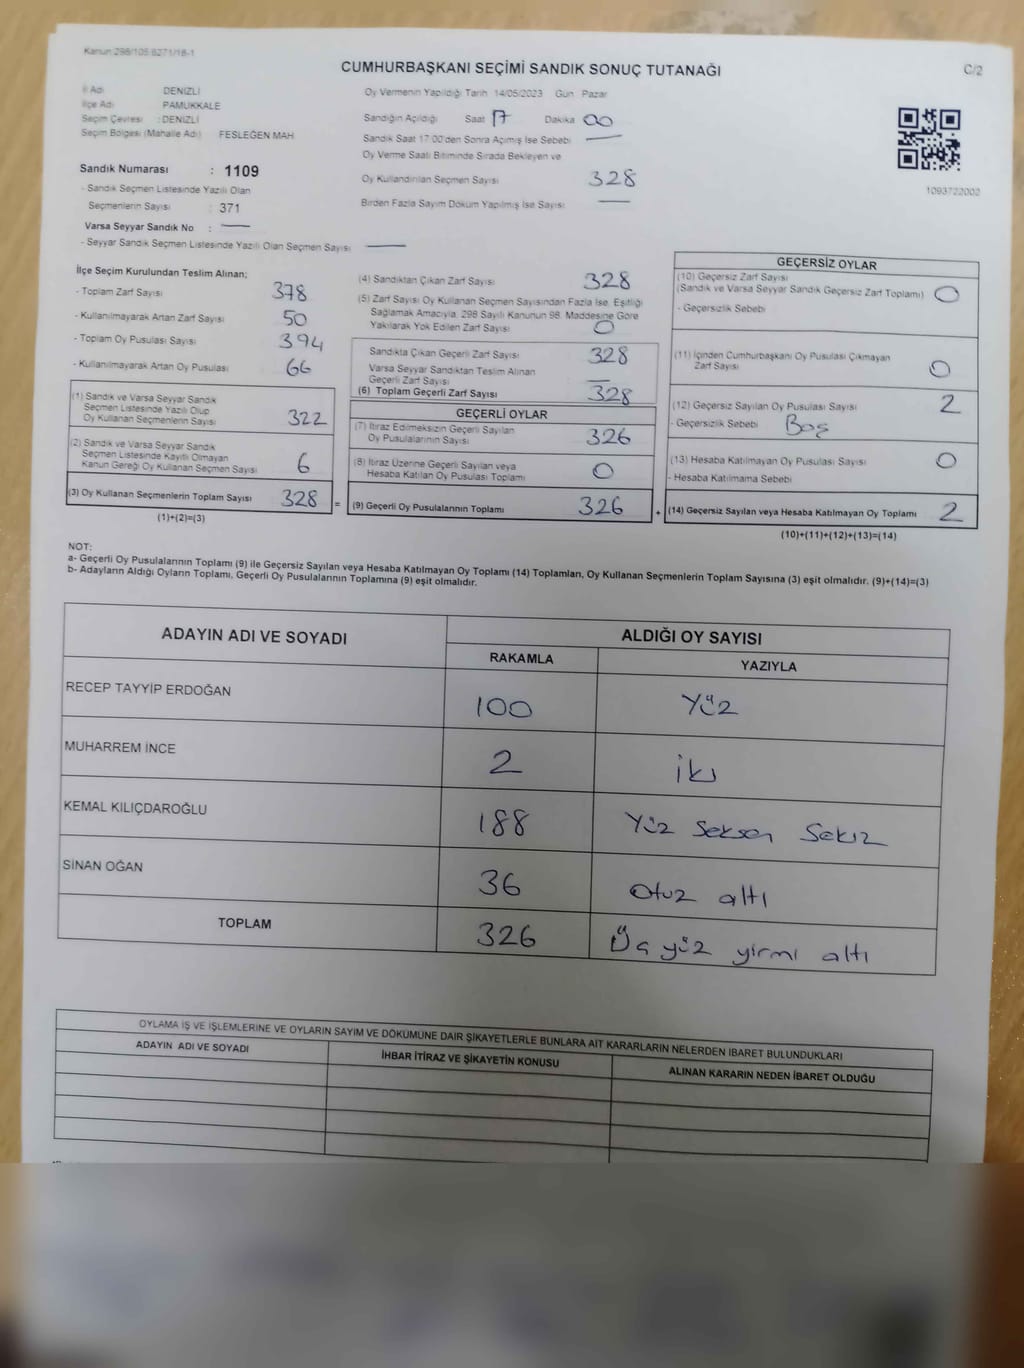 Kanun:298/105 6271/18-1
CUMHURBAŞKANI SEÇİMİ SANDIK SONUÇ TUTANAĞI
C/2
İl Adı DENİZLİ
İlçe Adı PAMUKKALE
Seçim Çevresi : DENİZLİ
Seçim Bölgesi (Mahalle Adı) FESLEĞEN MAH.
Oy Vermenin Yapıldığı Tarih 14/05/2023 Gün Pazar
Sandığın Açıldığı Saat 17 Dakika 00
Sandık Saat 17:00'den Sonra Açımış İse Sebebi
Oy Verme Saati Bitiminde Sırada Bekleyen ve
Oy Kullandırılan Seçmen Sayısı 328
Birden Fazla Sayım Döküm Yapılmış İse Sayısı
1093722002
Sandık Numarası : 1109
- Sandık Seçmen Listesinde Yazılı Olan
Seçmenlerin Sayısı : 371
Varsa Seyyar Sandık No :
- Seyyar Sandık Seçmen Listesinde Yazılı Olan Seçmen Sayısı
İlçe Seçim Kurulundan Teslim Alınan;
- Toplam Zarf Sayısı 378
- Kullanılmayarak Artan Zarf Sayısı 50
- Toplam Oy Pusulası Sayısı 394
- Kullanılmayarak Artan Oy Pusulası 66
(1) Sandık ve Varsa Seyyar Sandık
Seçmen Listesinde Yazılı Olup
Oy Kullanan Seçmenlerin Sayısı 322
(2) Sandık ve Varsa Seyyar Sandık
Seçmen Listesinde Kayıtlı Olmayan
Kanun Gereği Oy Kullanan Seçmen Sayısı 6
(3) Oy Kullanan Seçmenlerin Toplam Sayısı 328 =
(1)+(2)=(3)
(4) Sandıktan Çıkan Zarf Sayısı 328
(5) Zarf Sayısı Oy Kullanan Seçmen Sayısından Fazla İse, Eşitliği
Sağlamak Amacıyla, 298 Sayılı Kanunun 98. Maddesine Göre
Yakılarak Yok Edilen Zarf Sayısı 0
Sandıkta Çıkan Geçerli Zarf Sayısı 328
Varsa Seyyar Sandıktan Teslim Alınan
Geçerli Zarf Sayısı
(6) Toplam Geçerli Zarf Sayısı 328
GEÇERLİ OYLAR
(7) İtiraz Edilmeksizin Geçerli Sayılan
Oy Pusulalarının Sayısı 326
(8) İtiraz Üzerine Geçerli Sayılan veya
Hesaba Katılan Oy Pusulası Toplamı 0
(9) Geçerli Oy Pusulalarının Toplamı 326 +
GEÇERSİZ OYLAR
(10) Geçersiz Zarf Sayısı
(Sandık ve Varsa Seyyar Sandık Geçersiz Zarf Toplamı) 0
- Geçersizlik Sebebi
(11) İçinden Cumhurbaşkanı Oy Pusulası Çıkmayan
Zarf Sayısı 0
(12) Geçersiz Sayılan Oy Pusulası Sayısı 2
- Geçersizlik Sebebi Boş
(13) Hesaba Katılmayan Oy Pusulası Sayısı 0
- Hesaba Katılmama Sebebi
(14) Geçersiz Sayılan veya Hesaba Katılmayan Oy Toplamı 2
(10)+(11)+(12)+(13)=(14)
NOT:
a- Geçerli Oy Pusulalarının Toplamı (9) ile Geçersiz Sayılan veya Hesaba Katılmayan Oy Toplamı (14) Toplamları, Oy Kullanan Seçmenlerin Toplam Sayısına (3) eşit olmalıdır. (9)+(14)=(3)
b- Adayların Aldığı Oyların Toplamı, Geçerli Oy Pusulalarının Toplamına (9) eşit olmalıdır.
ADAYIN ADI VE SOYADI ALDIĞI OY SAYISI
RAKAMLA YAZIYLA
RECEP TAYYİP ERDOĞAN 100 Yüz
MUHARREM İNCE 2 iki
KEMAL KILIÇDAROĞLU 188 Yüz Seksen Sekiz
SİNAN OĞAN 36 Otuz altı
TOPLAM 326 Üç yüz yirmi altı
OYLAMA İŞ VE İŞLEMLERİNE VE OYLARIN SAYIM VE DÖKÜMÜNE DAİR ŞİKAYETLERLE BUNLARA AİT KARARLARIN NELERDEN İBARET BULUNDUKLARI
ADAYIN ADI VE SOYADI İHBAR İTİRAZ VE ŞİKAYETİN KONUSU ALINAN KARARIN NEDEN İBARET OLDUĞU